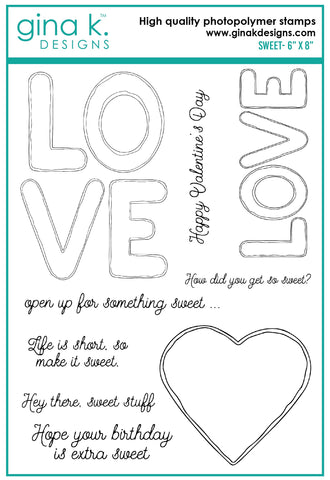 gina k.™
DESIGNS
High quality photopolymer stamps
www.ginakdesigns.com
SWEET- 6" X 8"
LO
VE
Happy Valentine's Day
LOVE
How did you get so sweet?
open up for something sweet ...
Life is short, so
make it sweet.
Hey there, sweet stuff
Hope your birthday
is extra sweet